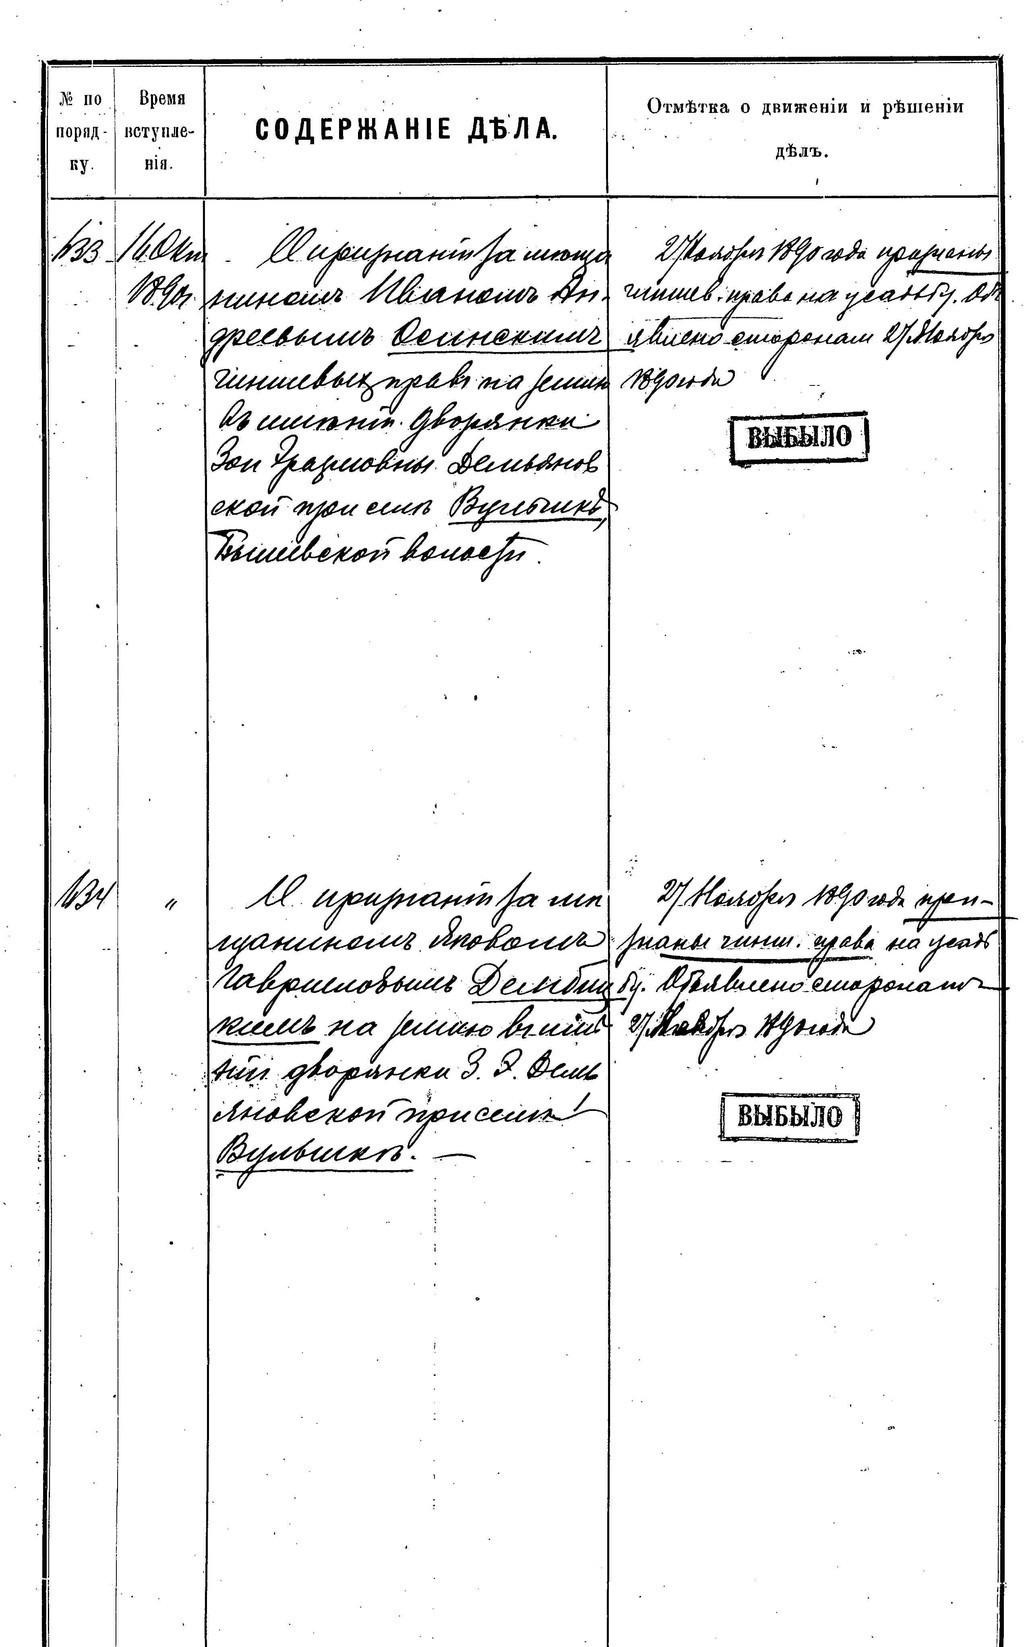 № по порядку.
Время вступленія.
СОДЕРЖАНІЕ ДѢЛА.
Отмѣтка о движеніи и рѣшеніи дѣлъ.
633
16 Окт
1890 г.
О признаніи за мѣща
ниномъ Иваномъ Ан-
дреевымъ Осинскимъ
чиншевыхъ правъ на землю
въ имѣніи дворянки
Зои Эразмовны Демьянов
ской при селѣ
Бышевской волости.
27 Ноября 1890 года признаны
чиншев. права на усадьбу. Объ
явлено сторонам 27 Ноября
1890 года
ВЫБЫЛО
634
"
О признаніи за мѣ
щаниномъ Яковомъ
Гавриловымъ Дембиц
кимъ на землю въ имѣ
ніи дворянки З. Э. Демь
яновской при селѣ
27 Ноября 1890 года при-
знаны чинш. права на усадь
бу. Объявлено сторонамъ
27 Ноября 1890 года
ВЫБЫЛО